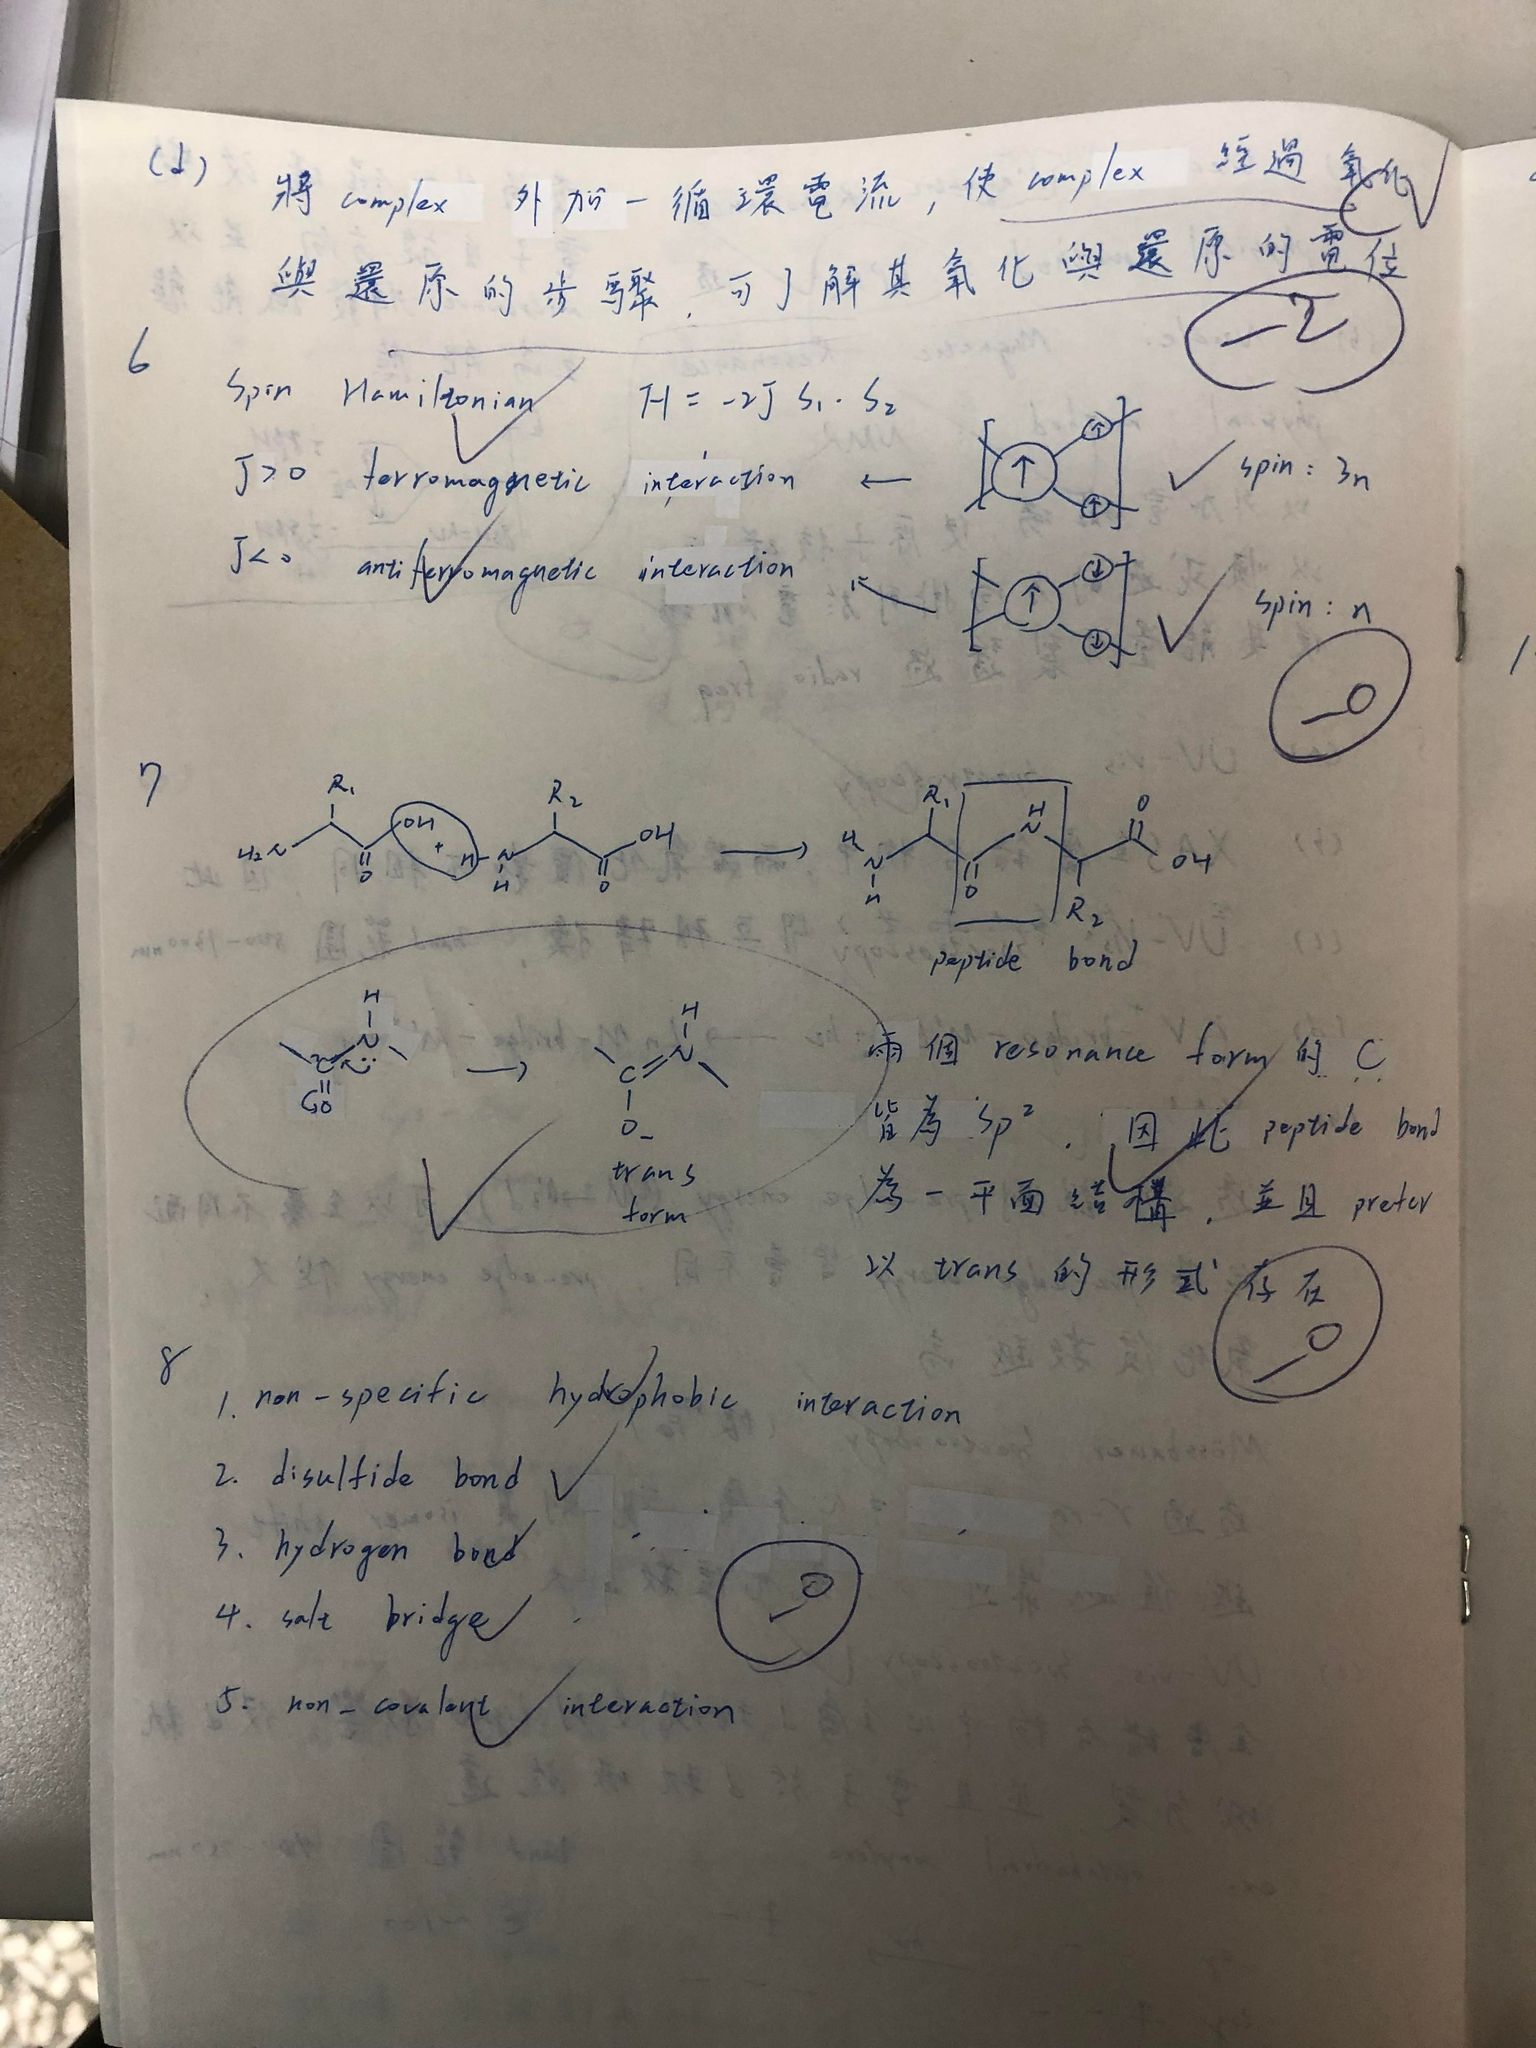 (d) 將 complex 外加一循環電流, 使 complex 經過氧化
與還原的步驟, 可了解其氧化與還原的電位
-2
6
Spin Hamiltonian H = -2J S₁·S₂
J>0 ferromagnetic interaction ← [↑ ↑ ↑] spin: 3n
J<0 antiferromagnetic interaction ← [↑ ↓ ↓] spin: n
-0
7
R₁ R₂ R₁ H O
H₂N OH + H N OH → H N N OH
O H O H O R₂
peptide bond
H H
C N → C N
O O-
trans
form
兩個 resonance form 的 C
皆為 sp², 因此 peptide bond
為一平面結構, 並且 prefer
以 trans 的形式存在
-0
8
1. non-specific hydrophobic interaction
2. disulfide bond
3. hydrogen bond
4. salt bridge
-0
5. non-covalant interaction